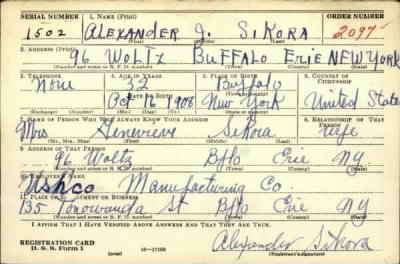 SERIAL NUMBER 1. NAME (Print) ORDER NUMBER
1502 ALEXANDER J. SIKORA 2097
(First) (Middle) (Last)
2. ADDRESS (Print)
96 WOLTZ BUFFALO ERIE NEW YORK
(Number and street or R. F. D. number) (Town) (County) (State)
3. TELEPHONE 4. AGE IN YEARS 5. PLACE OF BIRTH 6. COUNTRY OF CITIZENSHIP
None Buffalo
DATE OF BIRTH (Town or county)
Oct 16 1908 New York United States
(Exchange) (Number) (Mo.) (Day) (Yr.) (State or country)
7. NAME OF PERSON WHO WILL ALWAYS KNOW YOUR ADDRESS 8. RELATIONSHIP OF THAT PERSON
Mrs Genevieve Sikora wife
(Mr., Mrs., Miss) (First) (Middle) (Last)
9. ADDRESS OF THAT PERSON
96 Woltz Bflo Erie NY.
(Number and street or R. F. D. number) (Town) (County) (State)
10. EMPLOYER'S NAME
Ushco Manufacturing Co.
11. PLACE OF EMPLOYMENT OR BUSINESS
135 Tonowanda St Bflo Erie NY
(Number and street or R. F. D. number) (Town) (County) (State)
I AFFIRM THAT I HAVE VERIFIED ABOVE ANSWERS AND THAT THEY ARE TRUE.
REGISTRATION CARD
D. S. S. Form 1 (over) 16—17105
Alexander Sikora
(Registrant's signature)